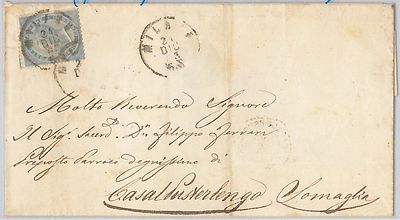 MILA
24
DIC
Molto Reverendo Signore
Il Sig.r Sacerd. D.n Filippo Ferrari
Preposto Parroco degnissimo di
Casalpusterlengo Somaglia